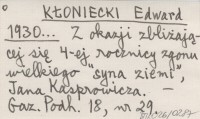 KŁONIECKI Edward
1930... Z okazji zbliżają-
cej się 4-ej rocznicy zgonu
wielkiego "syna ziemi",
Jana Kasprowicza. –
Gaz. Podh. 18, nr 29